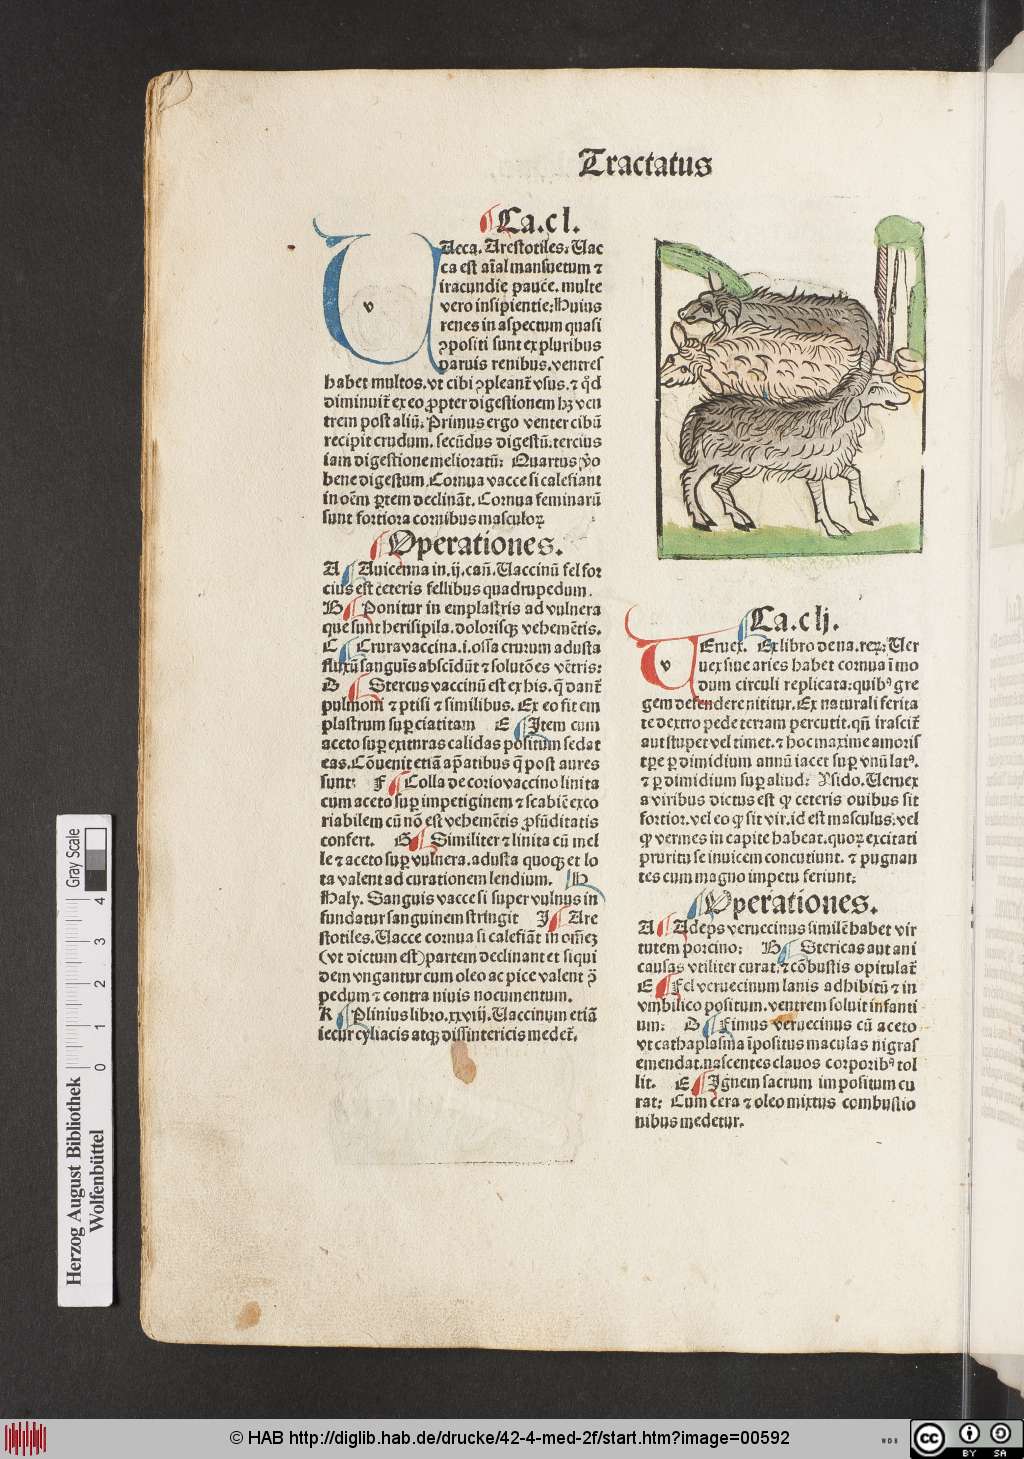 Tractatus
Ca.cl.
v
Acca. Arestotiles: Vac
ca est aīal mansuetum ⁊
iracundie pauce. multe
vero insipientie: Huius
renes in aspectum quasi
ꝯpositi sunt ex pluribus
paruis renibus. ventres
habet multos. vt cibi ꝯpleant᷑ vsus. ⁊ qd̓
diminuit᷑ ex eo ꝓpter digestionem hꝫ ven
trem post aliū. Primus ergo venter cibū
recipit crudum. secūdus digestū. tercius
iam digestione melioratū: Quartus ṽo
bene digestum. Cornua vacce si calefiant
in oēm ꝑtem declināt. Cornua feminarū
sunt fortiora cornibus masculoꝝ
Operationes.
A Auicenna in .ij. cañ. Vaccinū fel for
cius est ceteris fellibus quadrupedum.
B Ponitur in emplastris ad vulnera
que sunt herisipila. dolorisqꝫ vehemētis.
C Crura vaccina .i. ossa crurum adusta
fluxū sanguis abscīdūt ⁊ solutōes vētris:
D Stercus vaccinū est ex his. q̄ dant᷑
pulmoni ⁊ ptisi ⁊ similibus. Ex eo fit em
plastrum suꝑ ciatitam E Item cum
aceto suꝑ exituras calidas positum sedat
eas. Cōuenit etiā apatibus q̄ post aures
sunt: F Colla de corio vaccino linita
cum aceto suꝑ impetiginem ⁊ scabiē exco
riabilem cū nō est vehemētis ꝓfūditatis
confert. G Similiter ⁊ linita cū mel
le ⁊ aceto suꝑ vulnera. adusta quoqꝫ et lo
ta valent ad curationem lendium. H
Haly. Sanguis vacce si super vulnus in
fundatur sanguinem stringit J Are
stotiles. Vacce cornua si calefiāt in om̄eꝫ
(vt dictum est) partem declinant et si qui
dem vngantur cum oleo ac pice valent ꝯ̄
pedum ⁊ contra niuis nocumentum.
K Plinius libro .xxviij. Vaccinum etiā
iecur cyliacis atqꝫ dissintericis medet᷑.
Ca.clj.
v
Eruex. Ex libro de na. reꝝ: Ver
uex siue aries habet cornua ī mo
dum circuli replicata: quibꝰ gre
gem defendere nititur. Ex naturali ferita
te dextro pede terram percutit. qñ irascit᷑
aut stupet vel timet. ⁊ hoc maxime amoris
tꝑe ꝑ dimidium annū iacet suꝑ vnū latꝰ.
⁊ ꝑ dimidium suꝑ aliud: Ysido. Veruex
a viribus dictus est ꝙ ceteris ouibus sit
fortior. vel eo ꝙ sit vir. id est masculus. vel
ꝙ vermes in capite habeat. quoꝝ excitati
pruritu se inuicem concutiunt. ⁊ pugnan
tes cum magno impetu feriunt:
Operationes.
A Adeps veruecinus similē habet vir
tutem porcino: B Stericas aut ani
causas vtiliter curat. ⁊ cōbustis opitulat᷑
C Fel veruecinum lanis adhibitū ⁊ in
vmbilico positum. ventrem soluit infanti
um: D Fimus veruecinus cū aceto
vt cathaplasma īpositus maculas nigras
emendat. nascentes clauos corporibꝰ tol
lit. E Ignem sacrum impositum cu
rat: Cum cera ⁊ oleo mixtus combustio
nibus medetur.
Herzog August Bibliothek
Wolfenbüttel
Gray Scale
0 1 2 3 4
© HAB http://diglib.hab.de/drucke/42-4-med-2f/start.htm?image=00592
WDB
cc
BY SA